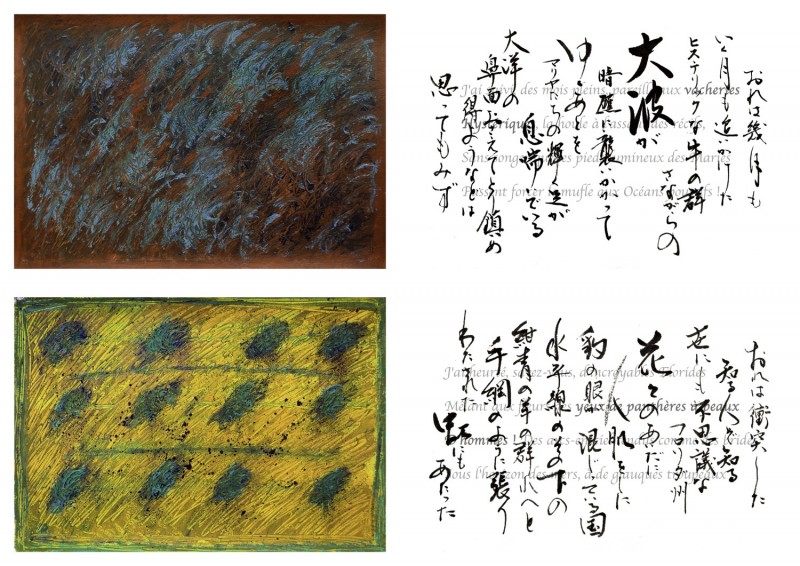 おれは幾月も
いく月も追いかけた
ヒステリックな牛の群
さながらの
大波が
暗礁に襲いかかって
ゆくあとを
マリヤたちの輝く足が
息喘いでいる
大洋の
鼻面おさえてとり鎮め
得ようなどとは
思ってもみず
J'ai suivi, des mois pleins, pareille aux vacheries
Hystériques, la houle à l'assaut des récifs,
Sans songer que les pieds lumineux des Maries
Pussent forcer le mufle aux Océans poussifs !
おれは衝突した
知る人ぞ知る
世にも不思議な
フロリダ州
花々のあいだに
豹の眼の混じている国
水平線のその下の
紺青の羊の群れへと
手綱のように張り
わたされた
虹にも
あたった
J'ai heurté, savez-vous, d'incroyables Florides
Mêlant aux fleurs des yeux de panthères à peaux
D'hommes ! Des arcs-en-ciel tendus comme des brides
Sous l'horizon des mers, à de glauques troupeaux !